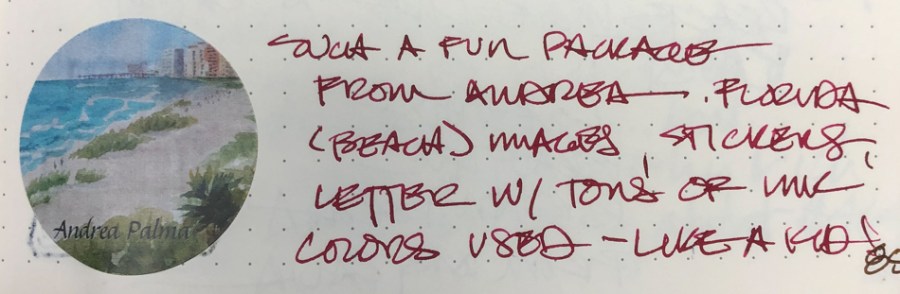 Andrea Palma
SUCH A FUN PACKAGE
FROM ANDREA — FLORIDA
(BEACH) IMAGES, STICKERS,
LETTER W/ TONS OF INK
COLORS USED - LIKE A KID!